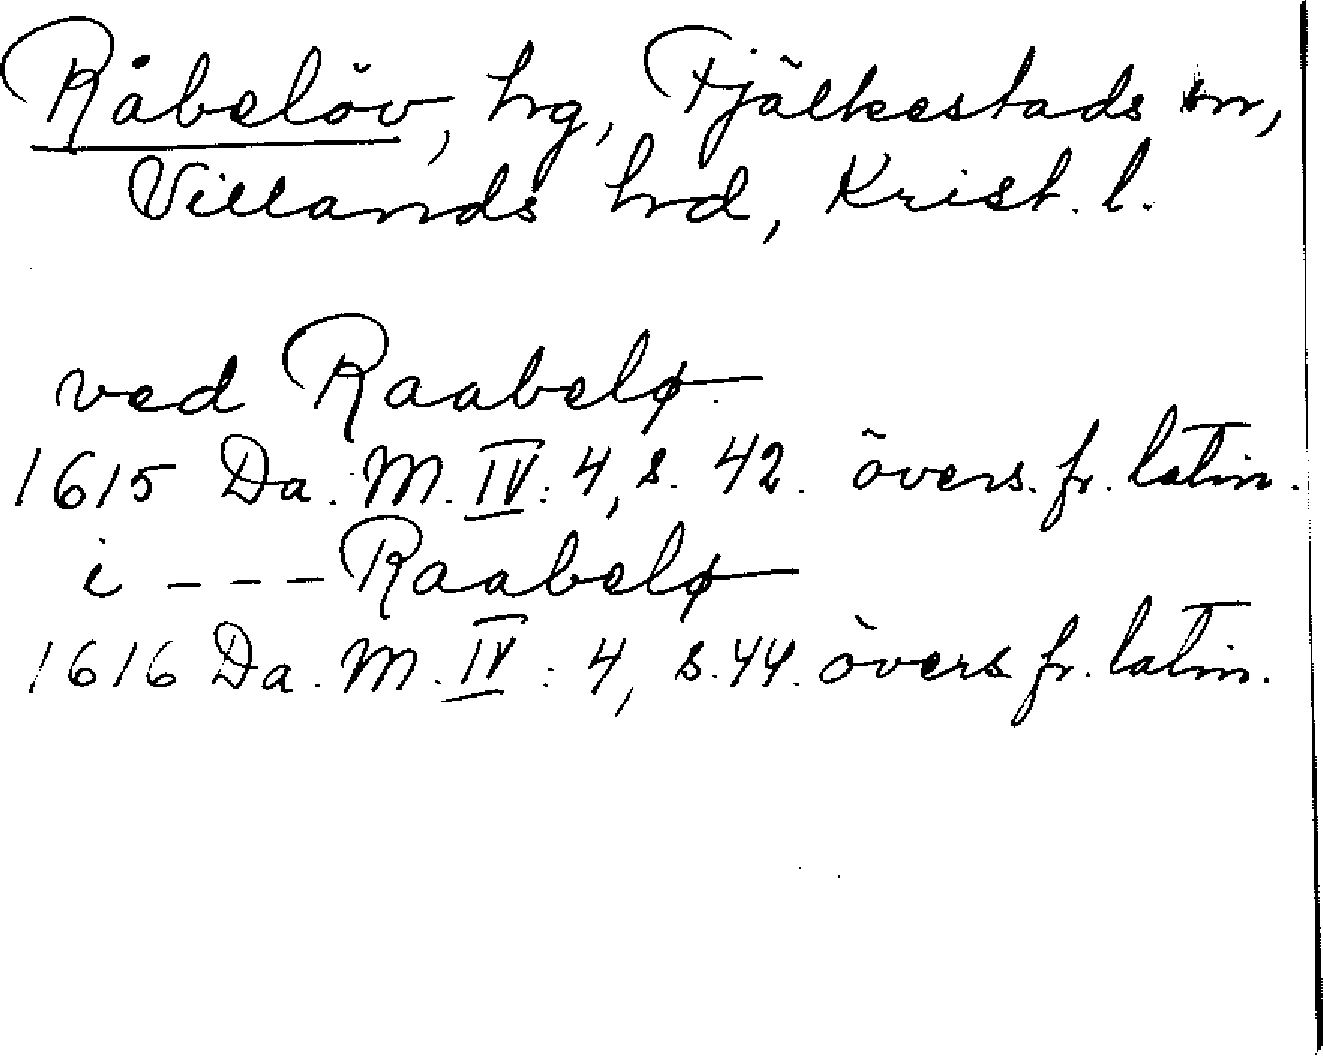 Råbelöv, hrg, Fjälkestads sn,
Villands hrd, Krist. l.
ved Raabelø
1615 Da. M. IV: 4, s. 42. övers. fr. latin.
i - - - Raabelø
1616 Da. M. IV: 4, s. 44. övers fr. latin.